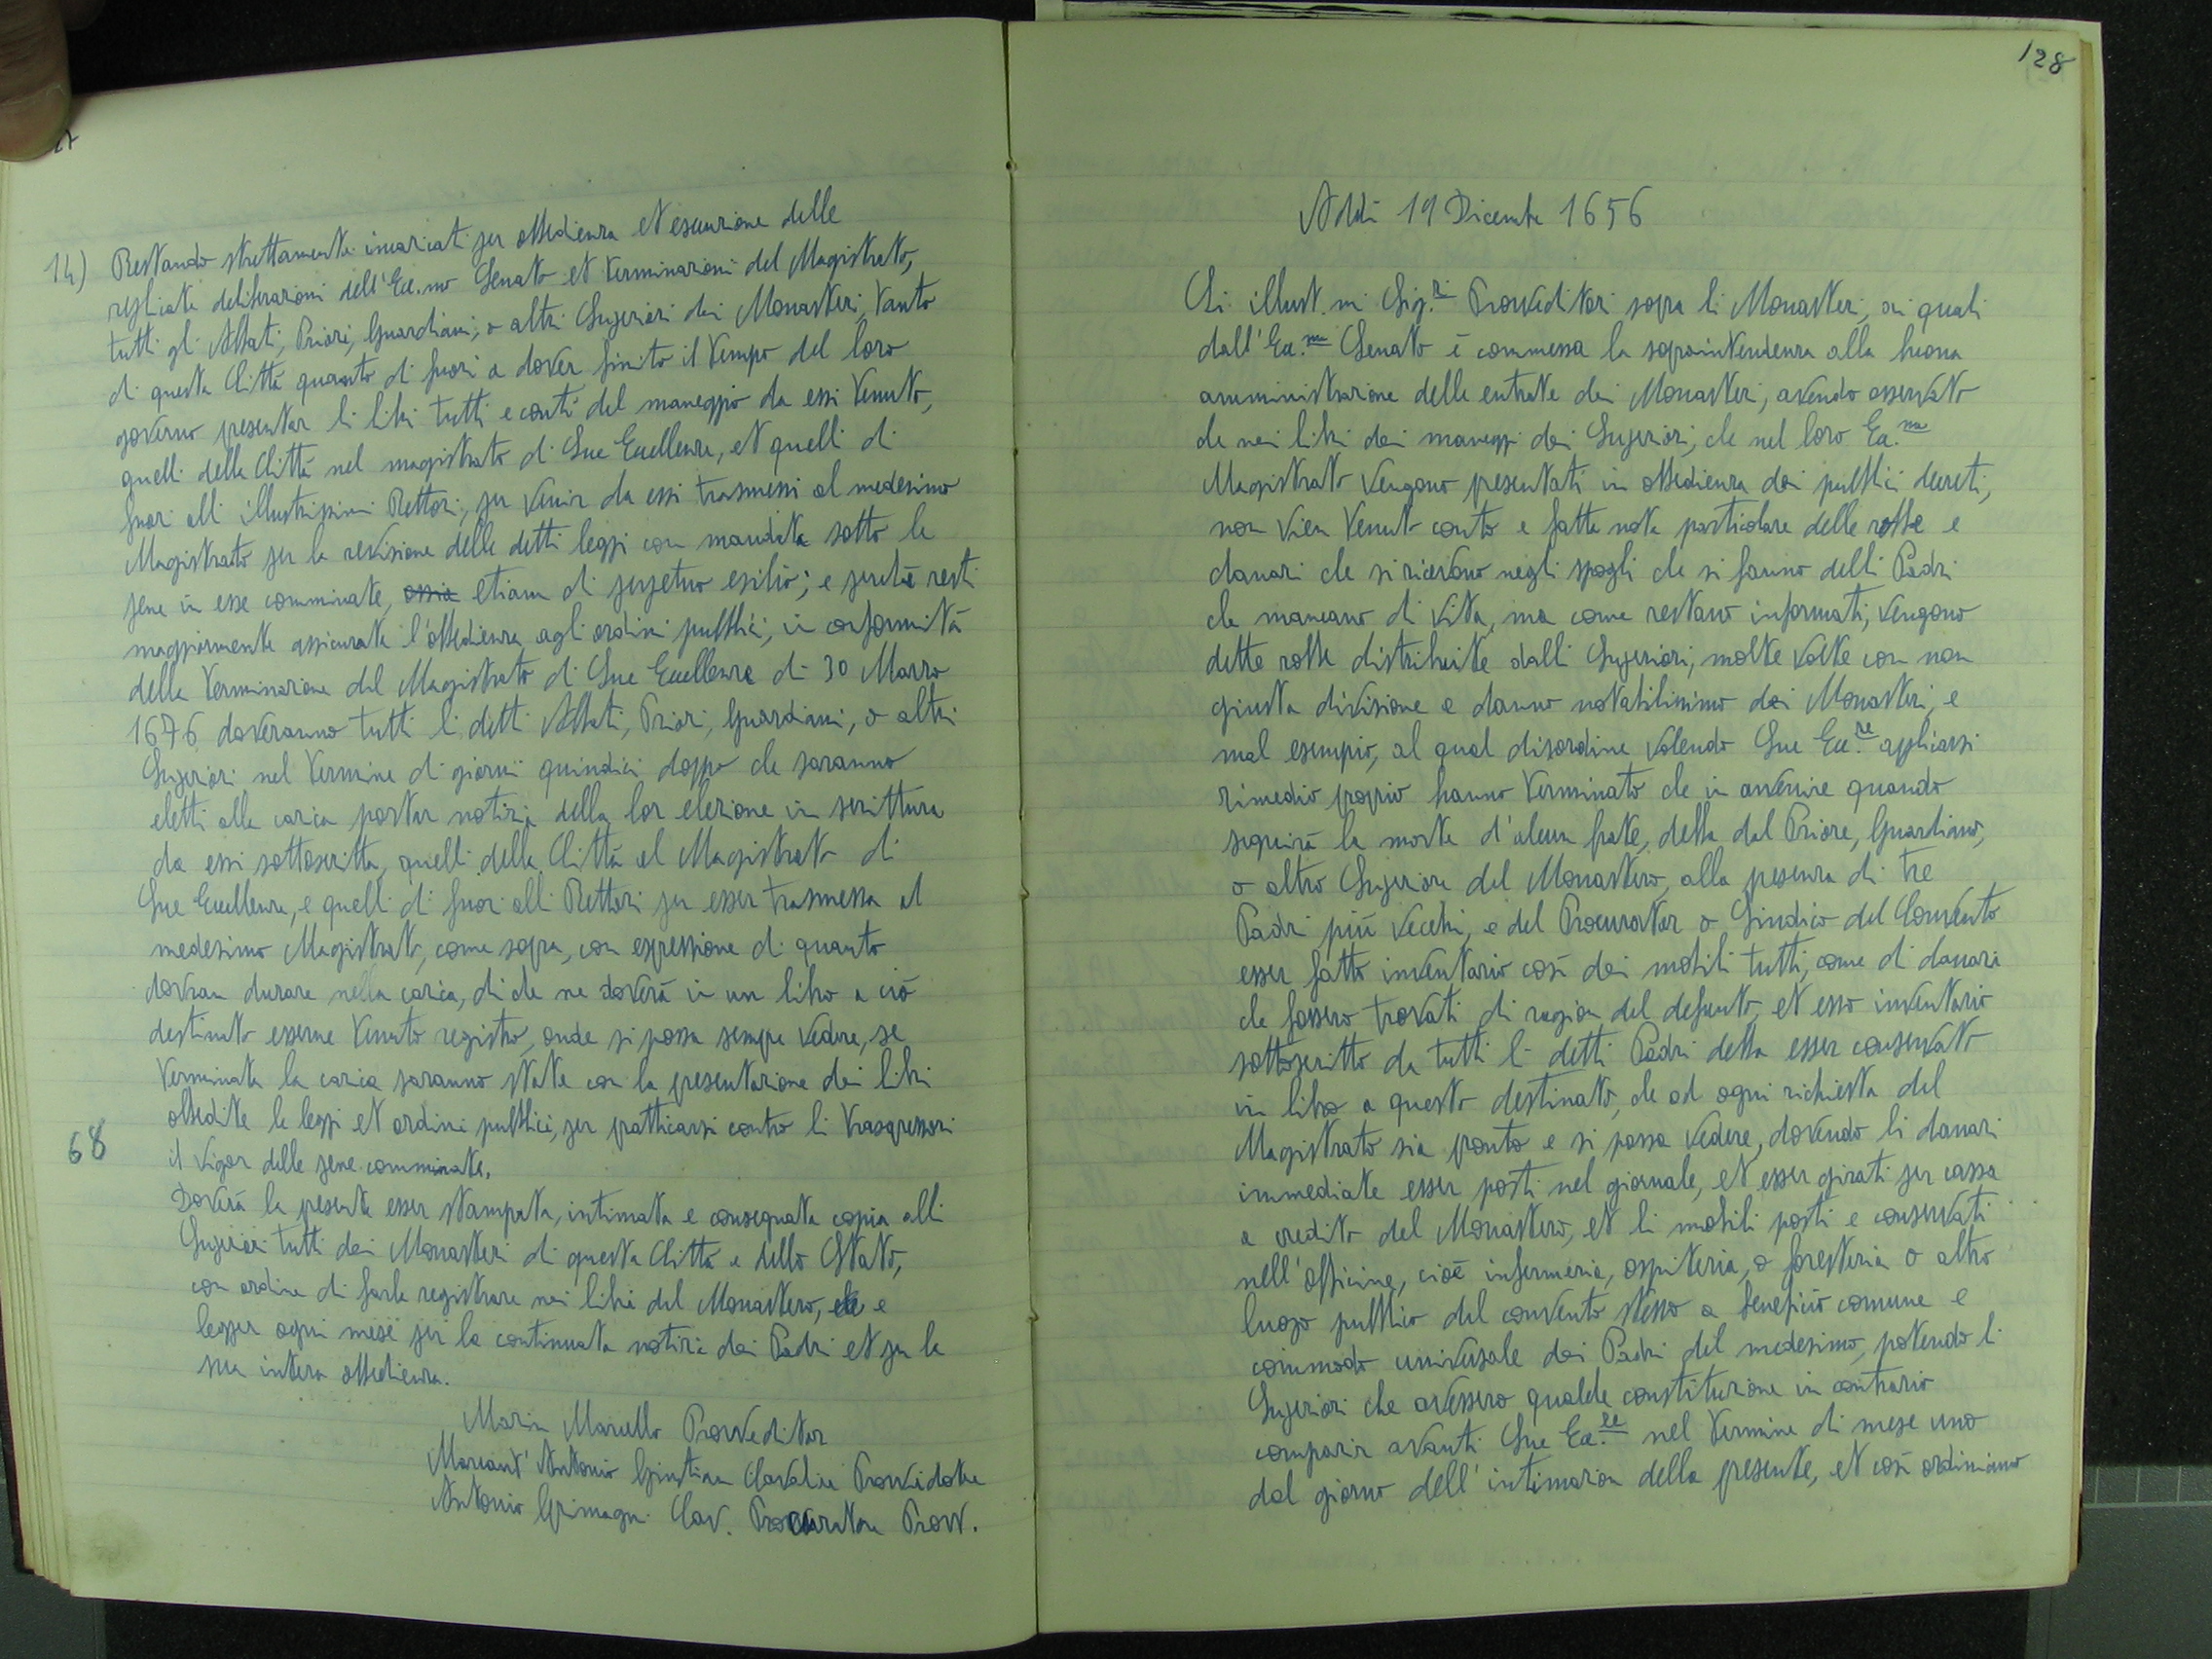 27
14) Restando strettamente incaricati per obbedienza et esecuzione delle
replicate deliberazioni dell'Ecc.mo Senato et terminazioni del Magistrato,
tutti gli Abbati, Priori, Guardiani, o altri Superiori dei Monasteri, tanto
di questa Città quanto di fuori a dover finito il tempo del loro
governo presentar li libri tutti e conti del maneggio da essi tenuto,
quelli della Città nel magistrato di Sue Eccellenze, et quelli di
fuori alli illustrissimi Rettori, per venir da essi trasmessi al medesimo
Magistrato per la revisione delle detti leggi con mandata sotto le
pene in esse comminate, ossia etiam di perpetuo esilio; e perchè resti
maggiormente assicurata l'obbedienza agli ordini pubblici, in conformità
della terminazione del Magistrato di Sue Eccellenze di 30 Marzo
1676 doveranno tutti li detti Abbati, Priori, Guardiani, o altri
Superiori nel termine di giorni quindici doppo che saranno
eletti alla carica portar notizia della lor elezione in scrittura
da essi sottoscritta, quelli della Città al Magistrato di
Sue Eccellenze, e quelli di fuori alli Rettori per esser trasmessa al
medesimo Magistrato, come sopra, con espressione di quanto
dovran durare nella carica, di che ne doverà in un libro a ciò
destinato esserne tenuto registro, onde si possa sempre vedere, se
terminata la carica saranno state con la presentazione dei libri
obbedite le leggi et ordini pubblici, per pratticarsi contro li trasgressori
68
il vigor delle pene comminate.
Doverà la presente esser stampata, intimata e consegnata copia alli
Superiori tutti dei Monasteri di questa Città e dello Stato,
con ordine di farle registrare nei libri del Monastero, e
legger ogni mese per la continuata notizia dei Padri et per la
sua intera obbedienza.
Marin Marcello Proveditor
Marcant'Antonio Giustinian Cavalier Provvidotre
Antonio Grimani Cav. Procurator Provv.
128
Addì 19 Dicembre 1656
Gli illust.mi Sig.ri Provveditori sopra li Monasteri, ai quali
dall'Ecc.mo Senato è commessa la sopraintendenza alla buona
amministrazione delle entrate dei Monasteri, avendo osservato
che nei libri dei maneggi dei Superiori, che nel loro Ecc.mo
Magistrato vengono presentati in obbedienza dei pubblici decreti,
non vien tenuto conto e fatta nota particolare delle robbe e
danari che si ricevono negli spogli che si fanno delli Padri
che mancano di vita, ma come restano informati, vengono
dette robbe distribuite dalli Superiori, molte volte con non
giusta divisione e danno notabilissimo dei Monasteri, e
mal esempio, al qual disordine volendo Sue Ecc.ze applicarsi
rimedio proprio hanno terminato che in avvenire quando
seguirà la morte d'alcun frate, debba dal Priore, Guardiano,
o altro Superiore del Monastero, alla presenza di tre
Padri più vecchi, e del Procurator o Sindico del Convento
esser fatto inventario così dei mobili tutti, come di danari
che fossero trovati di ragion del defunto, et esso inventario
sottoscritto da tutti li detti Padri debba esser conservato
in libro a questo destinato, che ad ogni richiesta del
Magistrato sia pronto e si possa vedere, dovendo li danari
immediate esser posti nel giornale, et esser girati per cassa
a credito del Monastero, et li mobili posti e conservati
nell'officine, cioè infermeria, ospiteria, o foresteria o altro
luogo pubblico del convento stesso a beneficio comune e
commodo universale dei Padri del medesimo, potendo li
Superiori che avessero qualche constituzione in contrario
comparir avanti Sue Ecc.ze nel termine di mese uno
dal giorno dell'intimazion della presente, et così ordiniamo